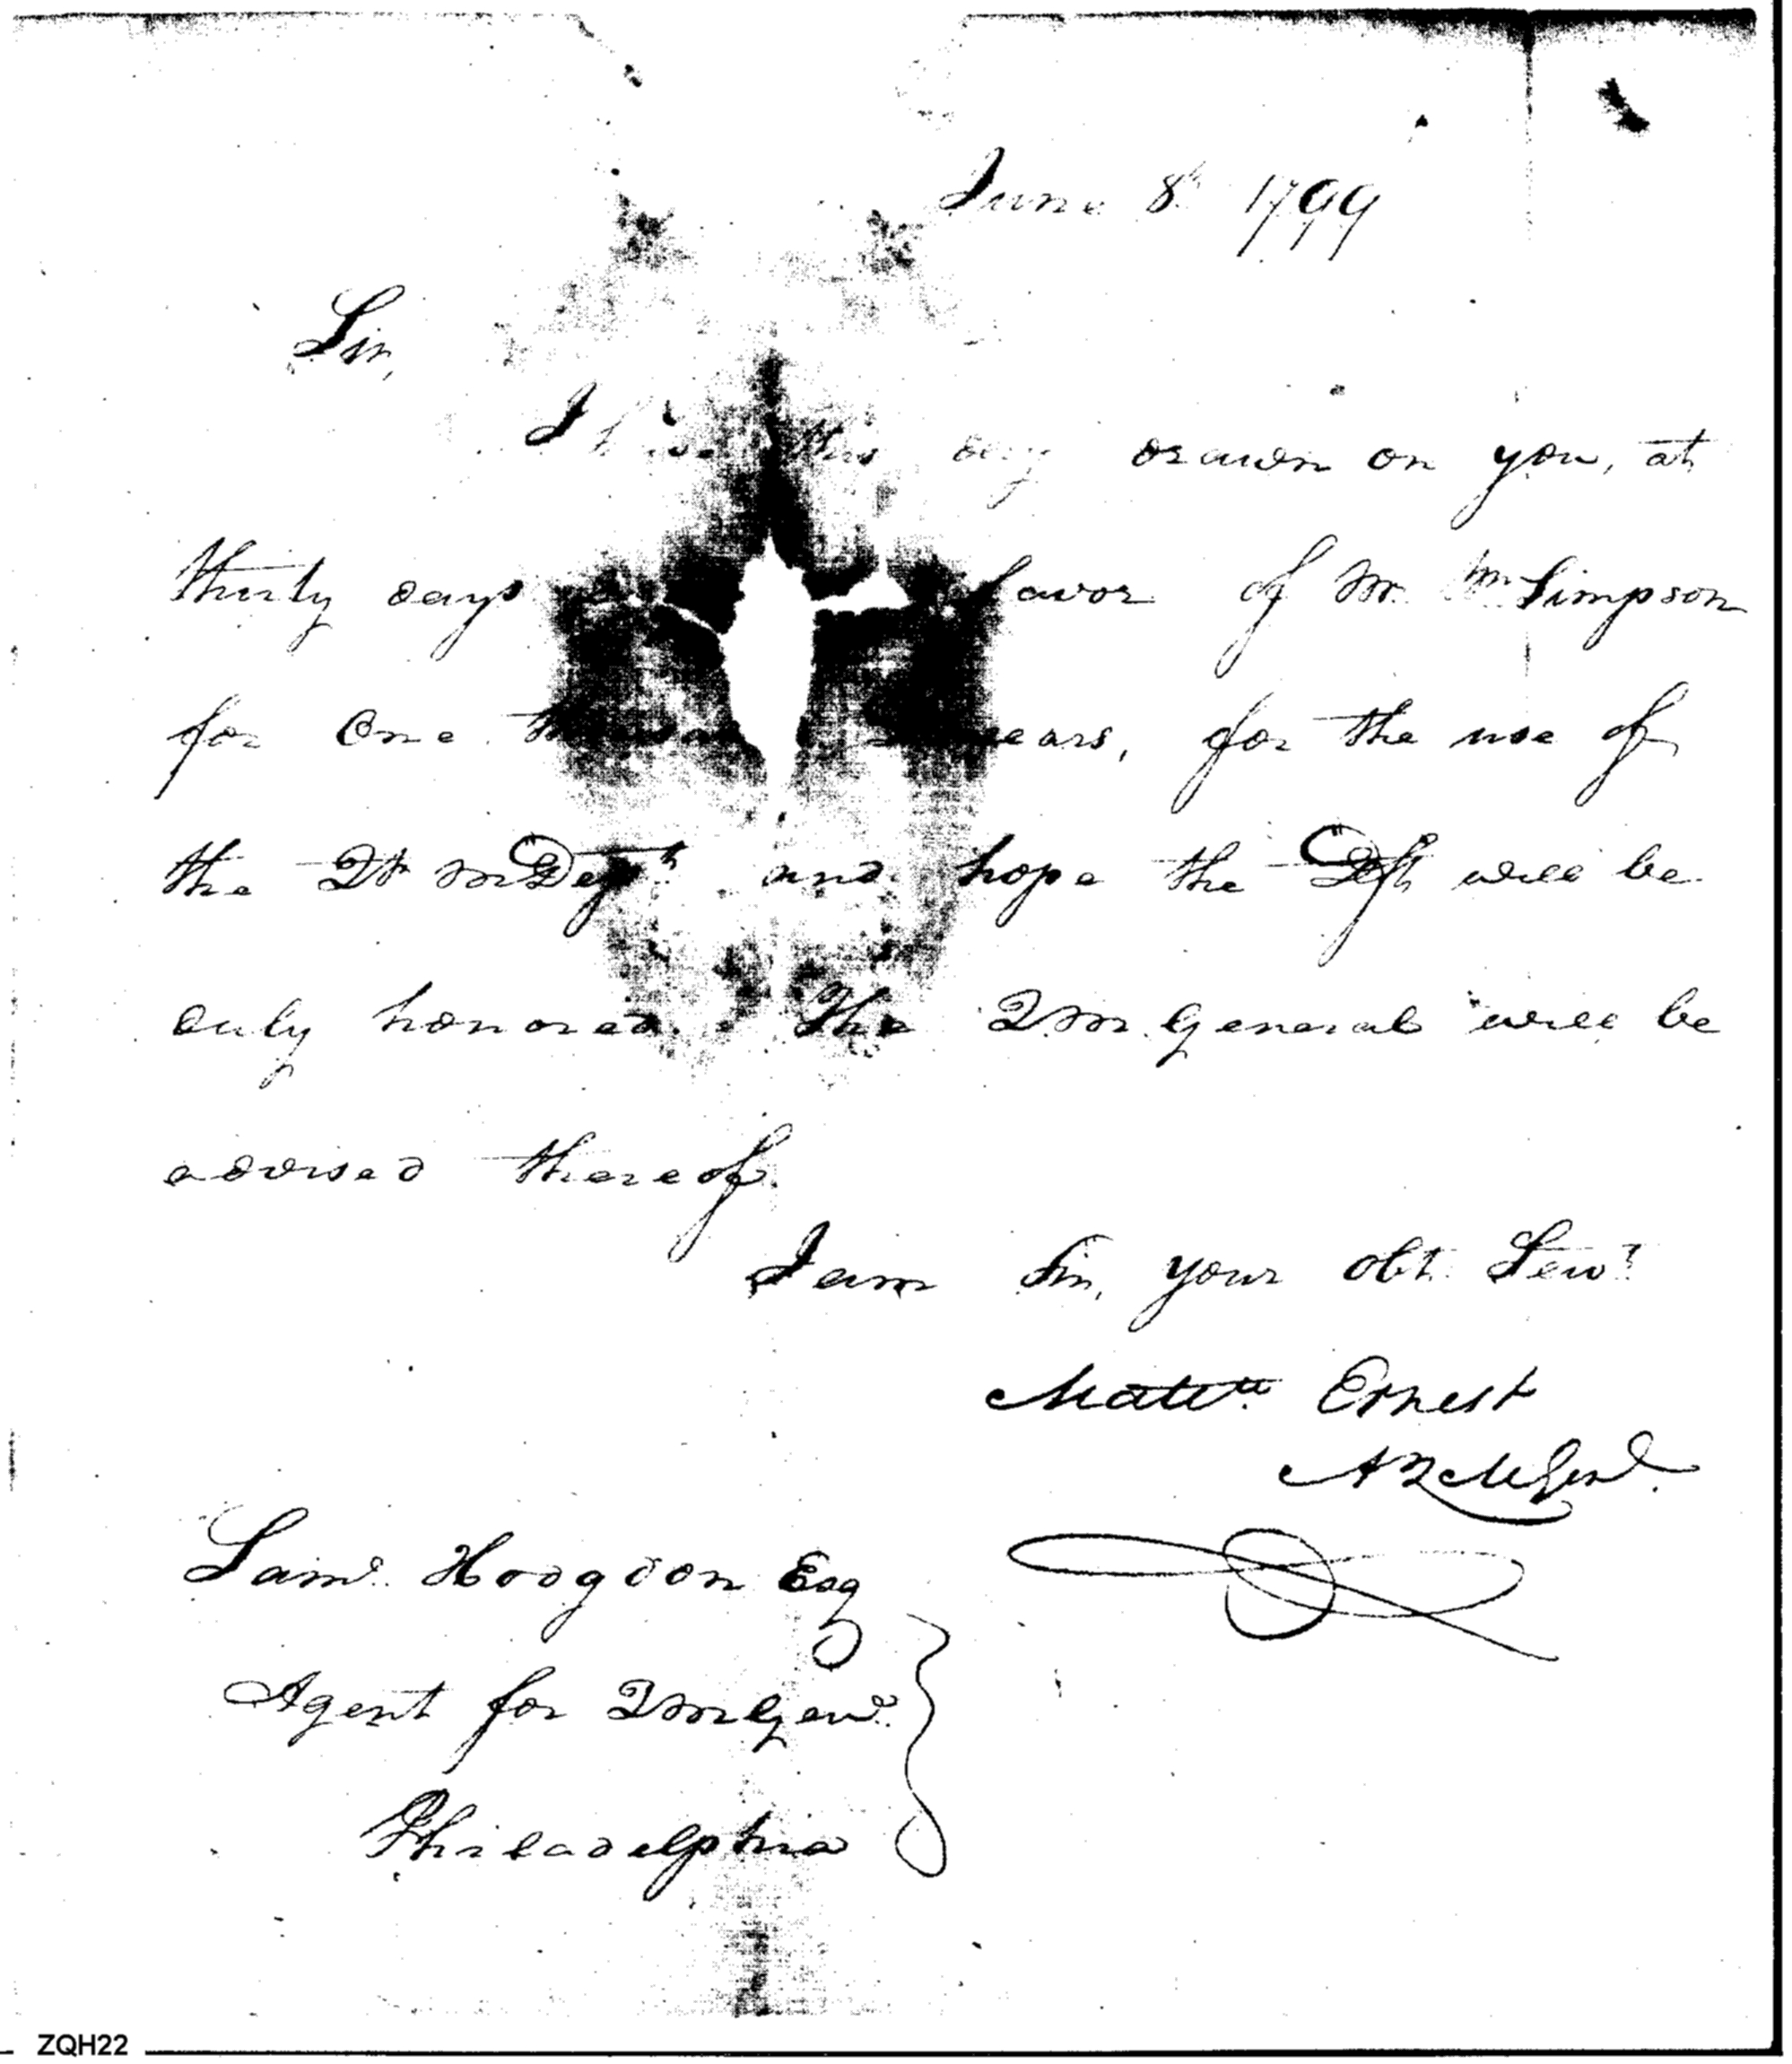 June 8th 1799
Sir,
I have this day drawn on you, at
thirty days favor of Mr. Wm Simpson
for One thousand dollars, for the use of
the Qr MrDept. and hope the Dft will be
duly honored. The QM.General will be
advised thereof.
I am Sir, your obt. Servt
Mattw. Ernest
AQMGenl.
Saml. Hodgdon Esq
Agent for QMGenl.
Philadelphia
ZQH22